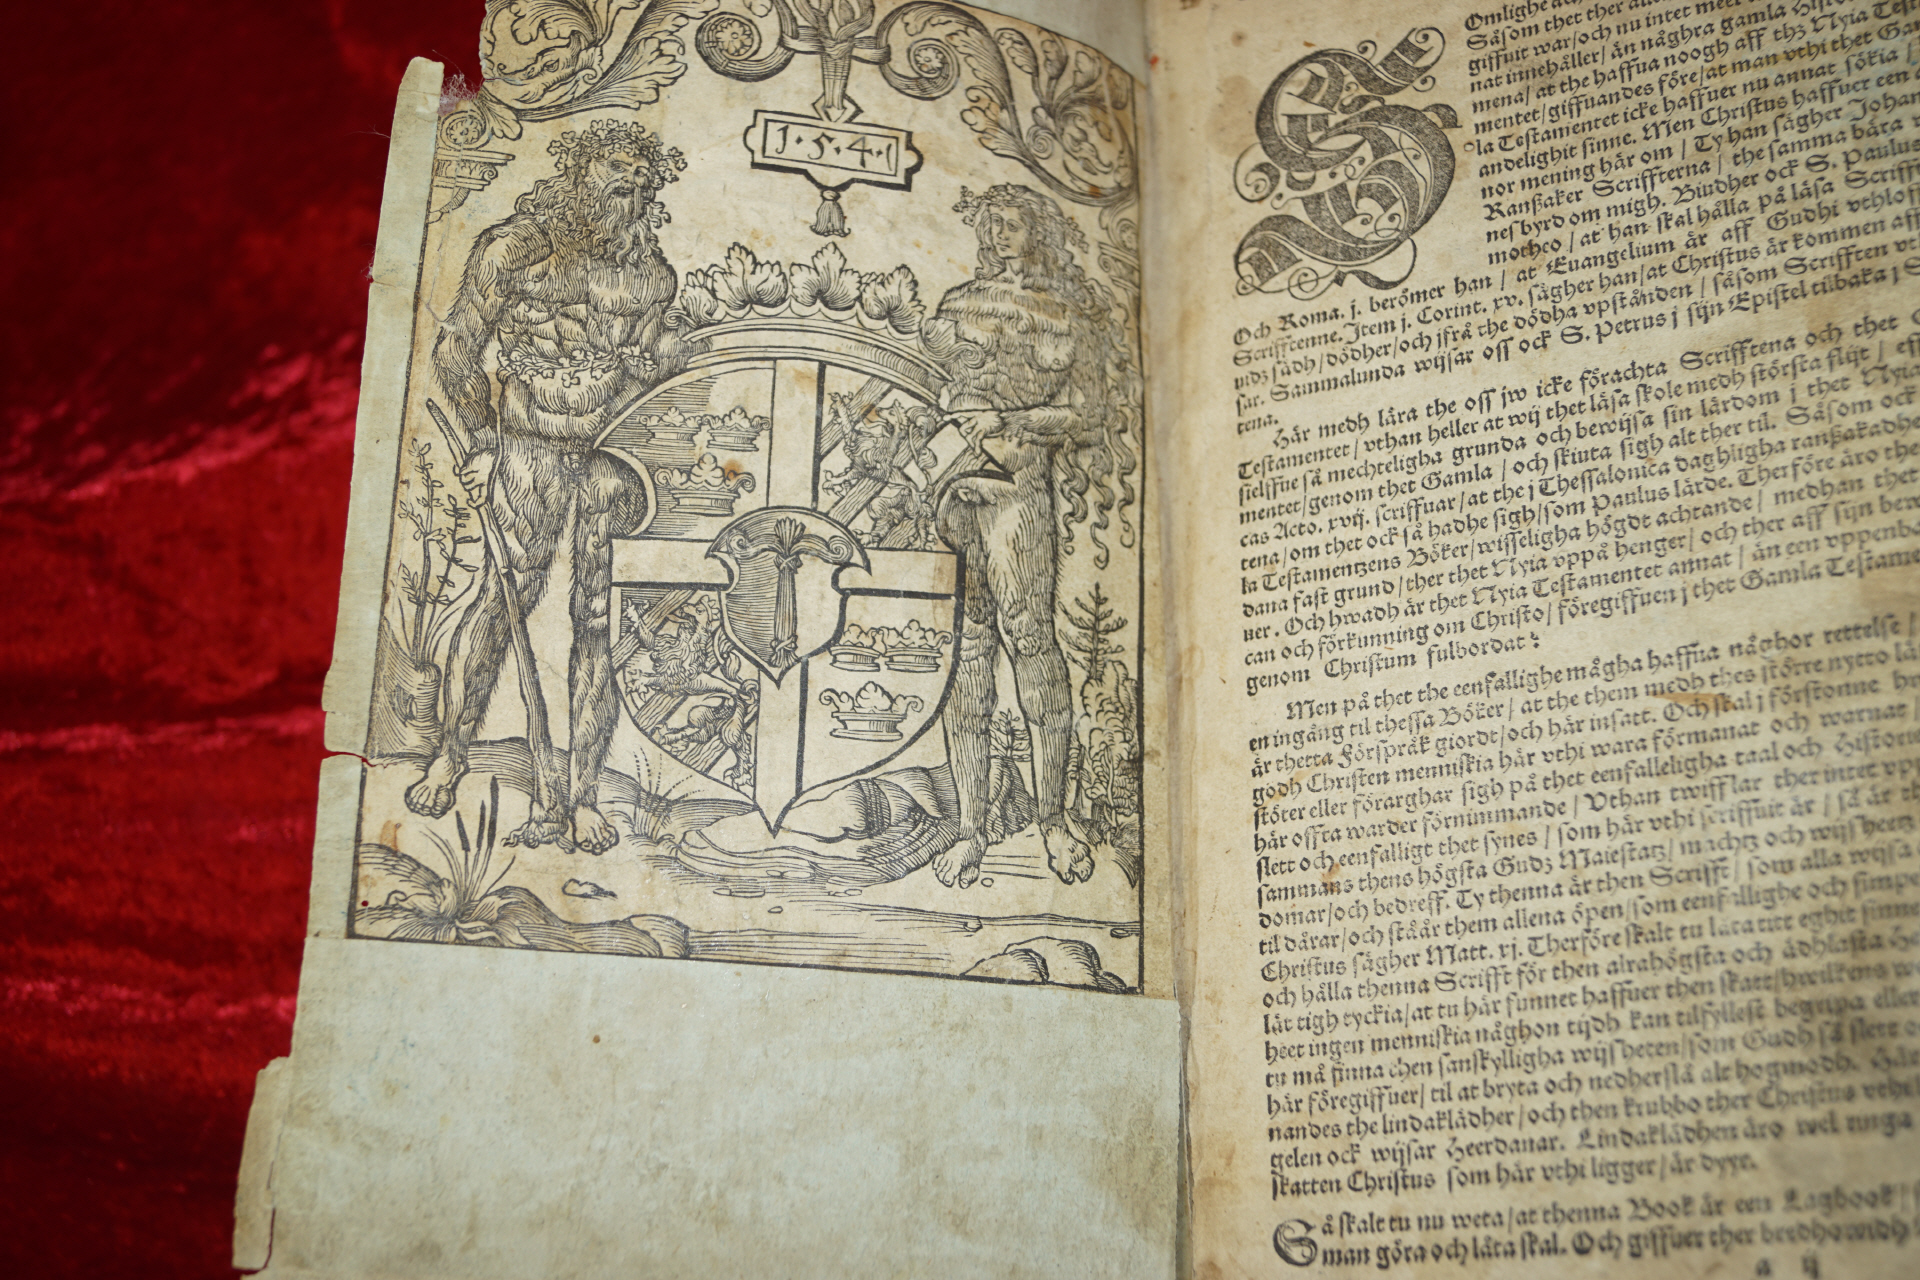 1·5·4·1
Såsom thet ther
giffuit war/och nu intet meer
nat innehåller/ än någhra gamla
mena/ at the haffua noogh aff thz Nyia
mentet/giffuandes före/at man vthi thet
la Testamentet icke haffuer nu annat sökia
andelighit sinne. Men Christus haffuer een
nor mening här om / Ty han sägher
Ranßaker Scriffterna / the samma bära
nesbyrd om migh. Biudher ock S. Paulus
motheo / at han skal hålla på läsa
Och Roma. j. berömer han / at Euangelium är aff Gudhi
Scrifftenne. Item j. Corint. xv. sägher han/at Christus är kommen aff
uidz sädh/dödher/och jfrå the dödha vpstånden / såsom Scrifften
sar. Sammalunda wijsar oss ock S. Petrus j sijn Epistel tilbaka j
tena.
Här medh lära the oss jw icke förachta Scrifftena och thet
Testamentet/vthan heller at wij thet läsa skole medh största flijt /
sielffue så mechteligha grunda och bewijsa sin lärdom j thet Nyia
mentet/genom thet Gamla / och skiuta sigh alt ther til. Såsom ock
cas Acto. xvij. scriffuar/at the j Thessalonica daghligha ranßakadhe
tena/om thet ock så hadhe sigh/som Paulus lärde. Therföre äro the
la Testamentzens Böker/wisseligha högdt achtande/ medhan thet
dana fast grund/ther thet Nyia vppå henger/ och ther aff sijn
uer. Och hwadh är thet Nyia Testamentet annat / än een
can och förkunning om Christo/ föregiffuen j thet Gamla
genom Christum fulbordat:
Men på thet the eenfallighe mågha haffua någhor rettelse /
en ingång til thessa Böker / at the them medh thes större nytto
är thetta Förspråk giordt/och här insatt. Och skal j förstonne
godh Christen menniskia här vthi wara förmanat och warnat /
stöter eller förarghar sigh på thet eenfalleligha taal och
här offta warder förnimmande / Vthan twifflar ther intet
slett och eenfalligt thet synes / som här vthi scriffuit är / så är
sammans thens högsta Gudz Maiestatz/ machtz och wijsheetz
domar/och bedreff. Ty thenna är then Scrifft / som alla wijsa
til dårar/och står them allena öpen/som eenfallighe och
Christus sägher Matt. xj. Therföre skalt tu låta titt eghit
och hålla thenna Scrifft för then alrahögsta och ädhlasta
lät tigh tyckia/at tu här funnet haffuer then skatt/hwilkens
heet ingen menniskia någhon tijdh kan tilfyllest begripa eller
tu må finna then sanskylligha wijsheten/som Gudh så slett
här föregiffuer/ til at bryta och nedherslå alt hogmodh.
nandes the lindaklädher/och then krubbo ther Christus
gelen ock wijsar Heerdanar. Lindaklädhen äro wel ringa
skatten Christus som här vthi ligger/är dyyr.
Så skalt tu nu weta/at thenna Book är een Lagbook/
man göra och låta skal. Och giffuer ther
a ij